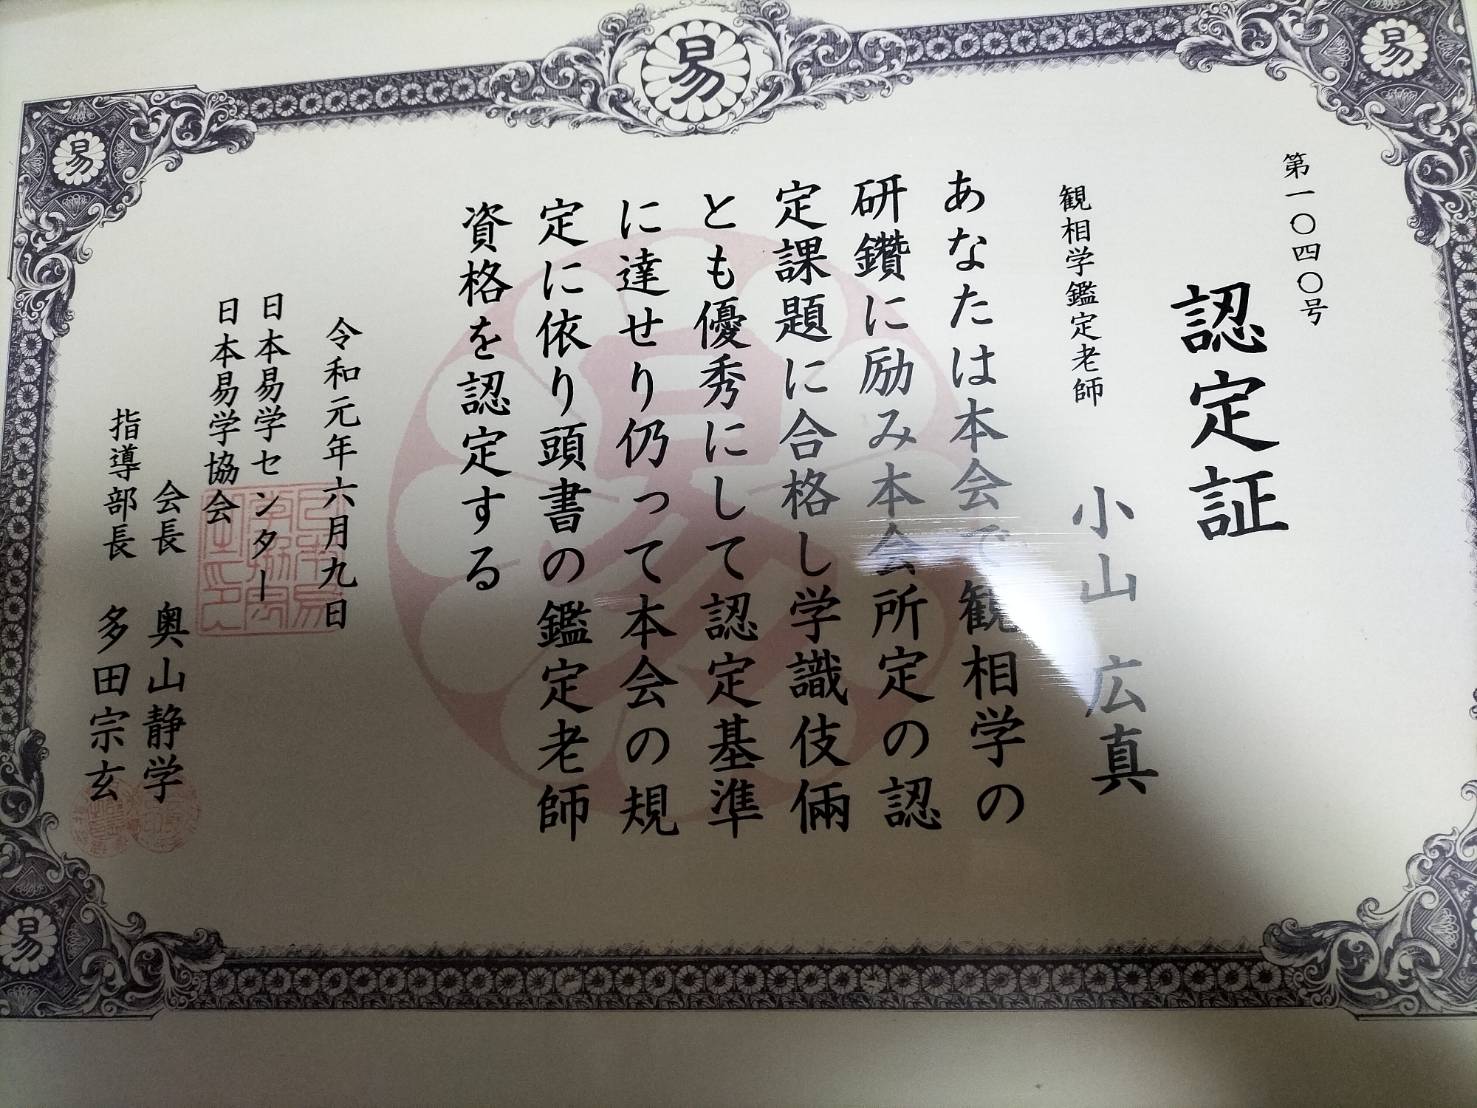 易
易
易
第一〇四〇号
認定証
観相学鑑定老師
小山広真
あなたは本会で観相学の
研鑽に励み本会所定の認
定課題に合格し学識伎倆
とも優秀にして認定基準
に達せり仍って本会の規
定に依り頭書の鑑定老師
資格を認定する
令和元年六月九日
日本易学センター
日本易学協会
会長 奥山静学
指導部長 多田宗玄
易
易